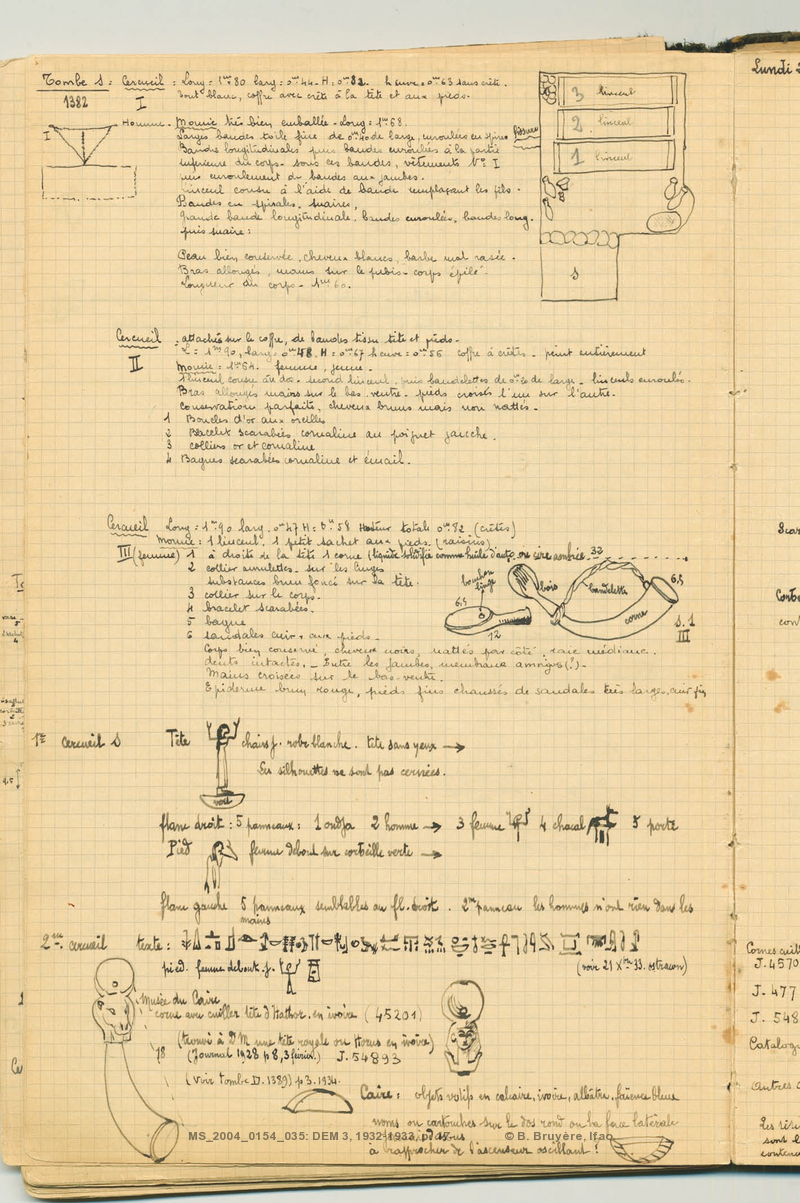 Tombe S: Cercueil: Long = 1m80 larg: 0m44 - H: 0m82. h cuve = 0m63 sans crête.
1382 I tout blanc, coffre avec crête à la tête et aux pieds.
Homme - Momie très bien emballée - Long: 1m68.
I Larges bandes toile fine de 0m40 de large, enroulées en spires
Bandes longitudinales puis bandes enroulées à la partie
inférieure du corps - sous ces bandes, vêtements No I
puis enroulement de bandes aux jambes.
linceul cousu à l'aide de bande remplaçant les fils.
Bandes en spirales, suaires,
Grande bande longitudinale, bandes enroulées, bandes long.
puis suaire:
Peau bien conservée, cheveux blancs, barbe mal rasée.
Bras allongés, mains sur le pubis - corps épilé.
Longueur du corps - 1m60.
3 linceul
2 linceul
1 linceul
S
Cercueil : attachés sur le coffre, de bandes tissu tête et pieds -
II L: 1m90, larg: 0m48. H: 0m67 h cuve = 0m56 coffre à crêtes - peint entièrement
Momie: 1m64. femme, jeune -
1 linceul cousu au dos - second linceul, puis bandelettes de de large - linceuls enroulés.
Bras allongés mains sur le bas-ventre - pieds croisés l'un sur l'autre -
Conservation parfaite, cheveux bruns mais non nattés -
1 Boucles d'or aux oreilles
2 Bracelet scarabées cornaline au poignet gauche.
3 colliers or et cornaline
4 Bagues scarabées cornaline et émail.
Cercueil Long: 1m90 larg. 0m47 H: 0m58 Hauteur totale 0m82 (crêtes)
Momie: 1 linceul. 1 petit sachet aux pieds. (raisins)
III (femme) 1 à droite de la tête 1 corne (liquide solidifié comme huile d'auto, ou cire ambrée. 32
2 collier amulettes - sur les linges
substances brun foncé sur la tête.
3 collier sur le corps -
4 bracelet scarabées -
5 bague
6 sandales cuir, aux pieds -
bouchon linge bois bandelette 6.5
6.5 12 corne S. 1 III
Corps bien conservé, cheveux noirs, nattés par côté, raie médiane.
dents intactes, - Entre les jambes, membranes amnios (?) -
Mains croisées sur le bas-ventre.
Epiderme brun rouge, pieds fins chaussés de sandales très large, cuir fin
1er cercueil S Tête chairs j. robe blanche. tête sans yeux →
Les silhouettes ne sont pas cernées.
vert
flanc droit: 5 panneaux: 1 oudja 2 homme → 3 femme 4 chacal 5 porte
Pied femme debout sur corbeille verte →
flanc gauche 5 panneaux semblables au fl. droit. 2me panneau les hommes n'ont rien dans les
mains
2me cercueil texte:
pied. femme debout. j. (voir 21 Xbre 33. ostracon)
Musée du Caire
corne avec cuiller tête d'Hathor. en ivoire (45201)
(trouvé à DM une tête royale ou Horus en ivoire)
78 (Journal 1928 p 8, 3 février.) J. 54893
(Voir Tombe D. 1389) p 3. 1934.
Caire: objets votifs en calcaire, ivoire, albâtre, faïence bleue
noms ou cartouches sur le dos rond ou la face latérale
à rapprocher de l'ascenseur oscillant!
MS_2004_0154_035: DEM 3, 1932-1933, p. © B. Bruyère, Ifao
Lundi
Cornes cuill
J. 4570
J. 477
J. 548
Catalog
Autres